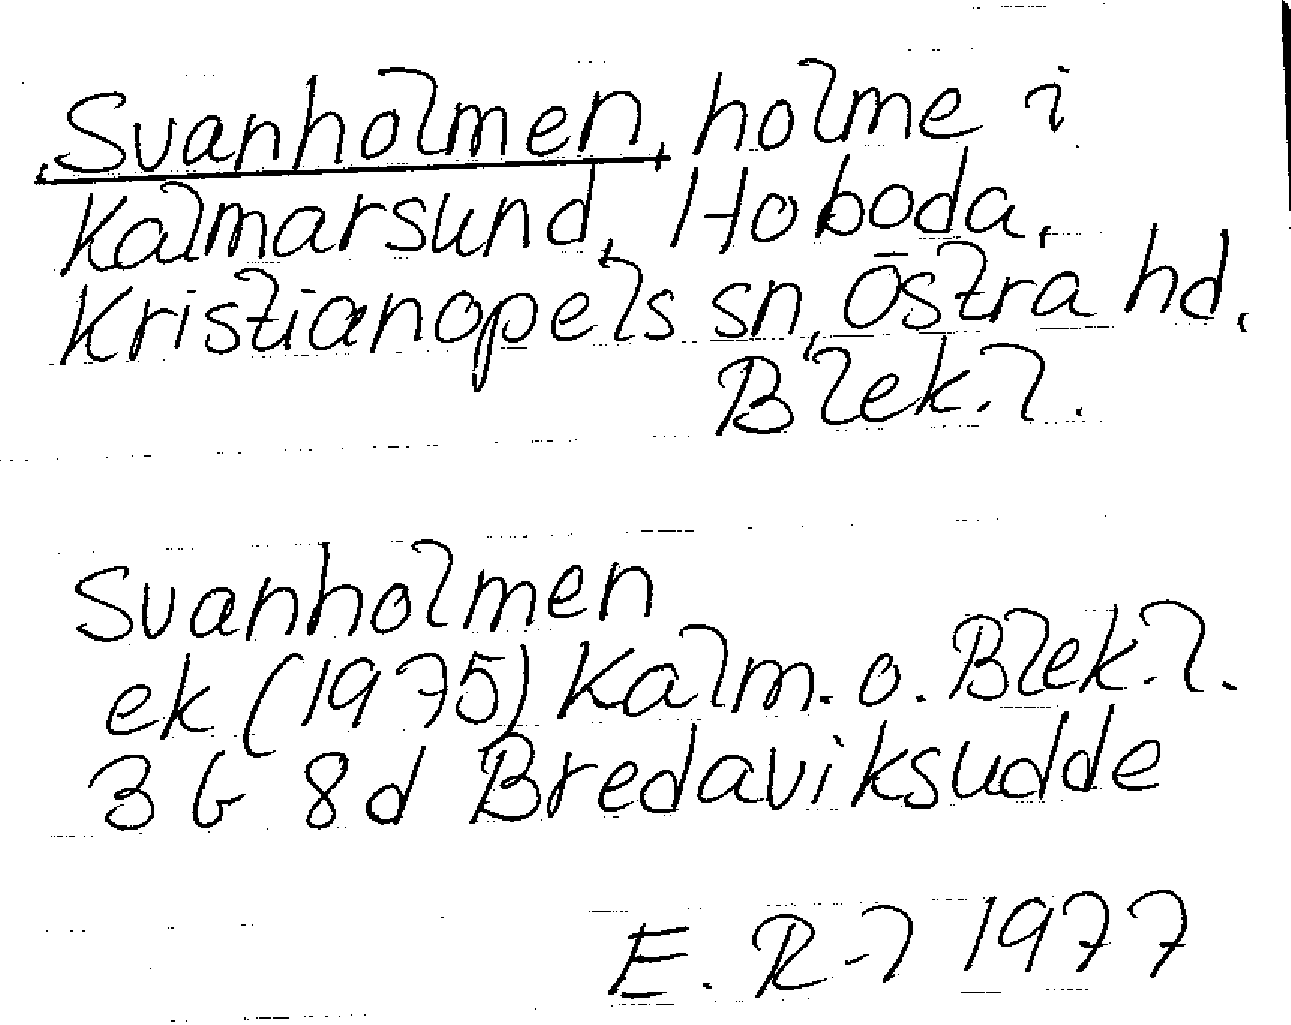 Svanholmen, holme i
Kalmarsund, Hoboda,
Kristianopels sn, Östra hd,
Blek. l.
Svanholmen
ek (1975) Kalm. o. Blek. l.
3 G 8d Bredaviksudde
E. R-l 1977